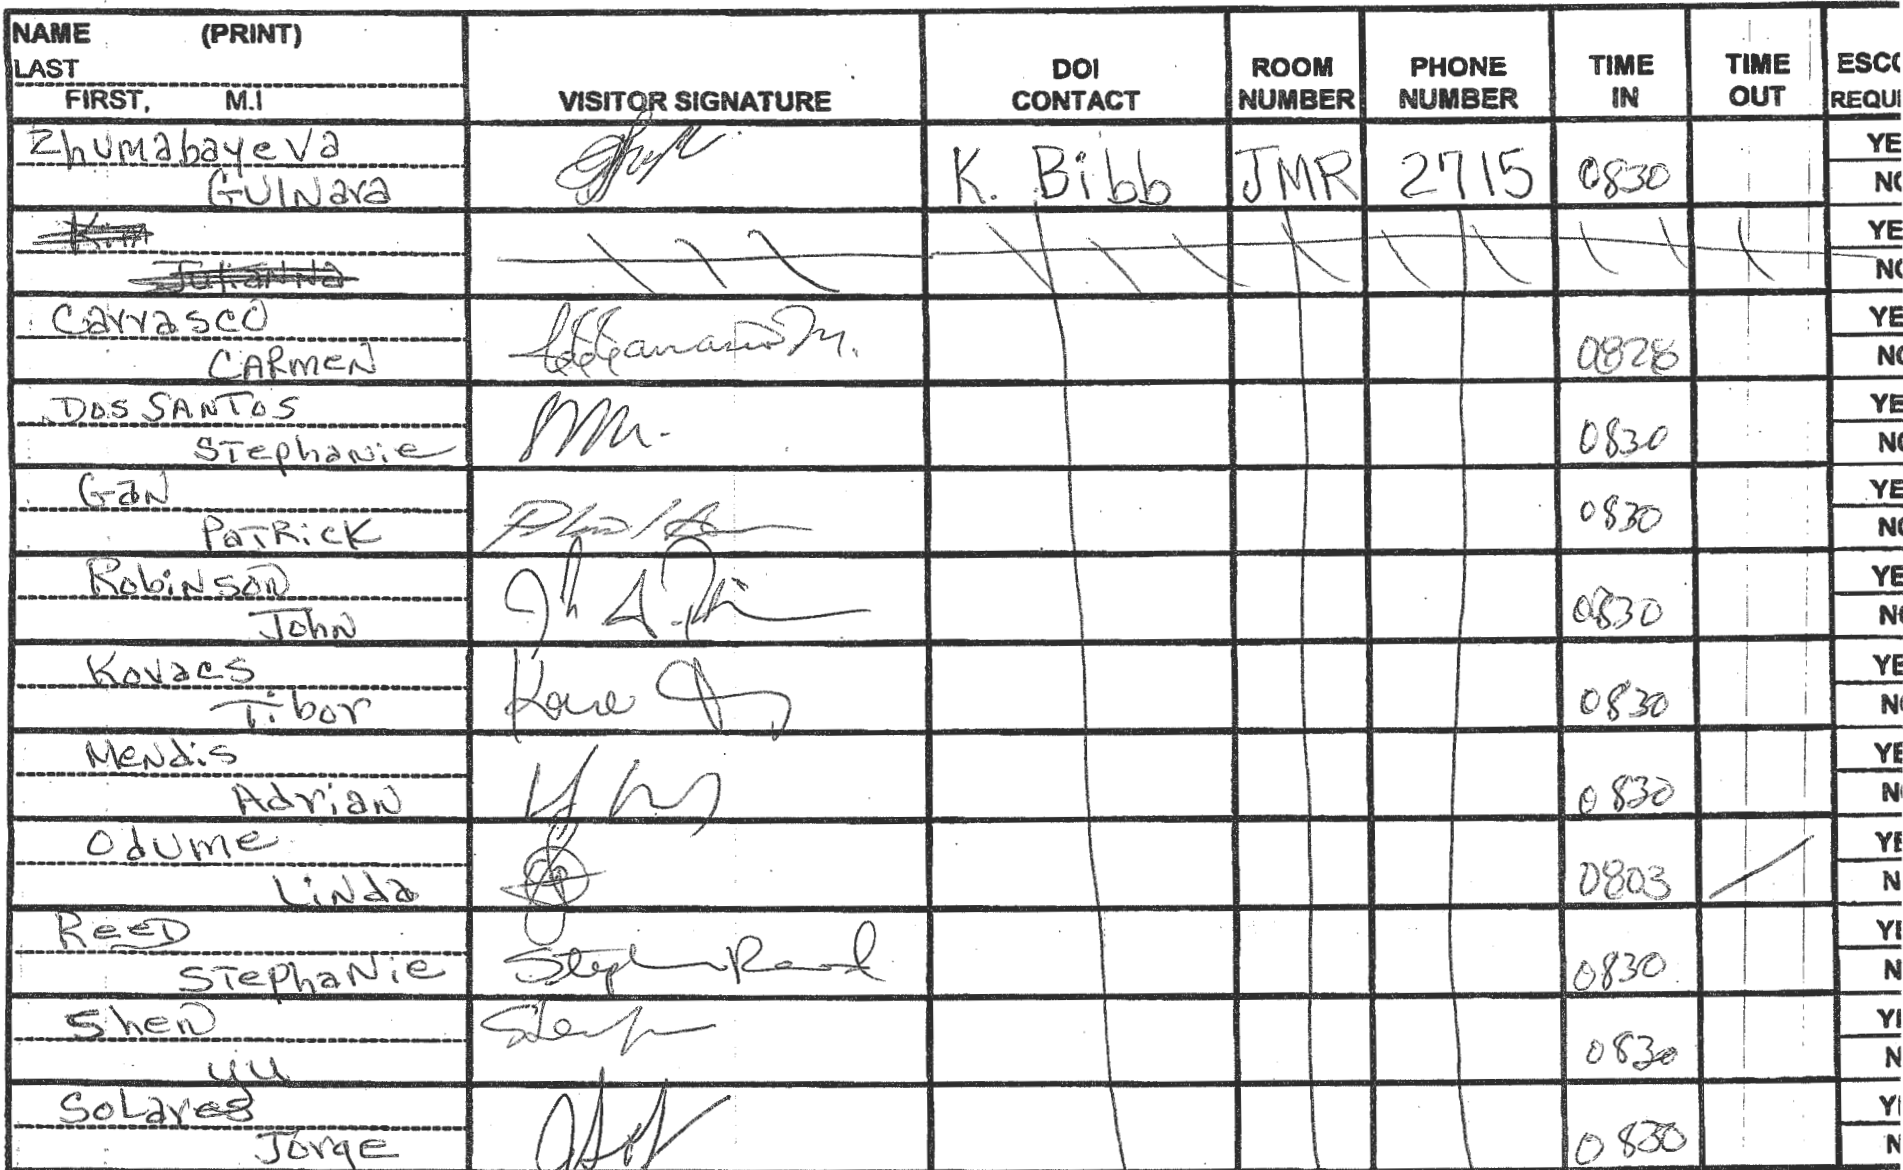 NAME (PRINT)
LAST
FIRST, M.I
VISITOR SIGNATURE
DOI
CONTACT
ROOM
NUMBER
PHONE
NUMBER
TIME
IN
TIME
OUT
ESCO
REQUI
Zhumabayeva
GUlNara
K. Bibb JMR 2715 0830
YE
NO
Kim
Julianna
YE
NO
Carrasco
CARMEN
0828
YE
NO
DOS SANTOS
Stephanie
0830
YE
NO
Gan
PATRicK
0830
YE
NO
RobiNson
John
0830
YE
NO
Kovacs
Tibor
0830
YE
NO
MeNdis
AdriaN
0830
YE
NO
OdUme
LiNda
0803
YE
N
ReeD
STephaNie
Stephanie Reed
0830
YE
N
SheN
yu
0830
YE
N
SoLares
Jorge
0830
YE
N